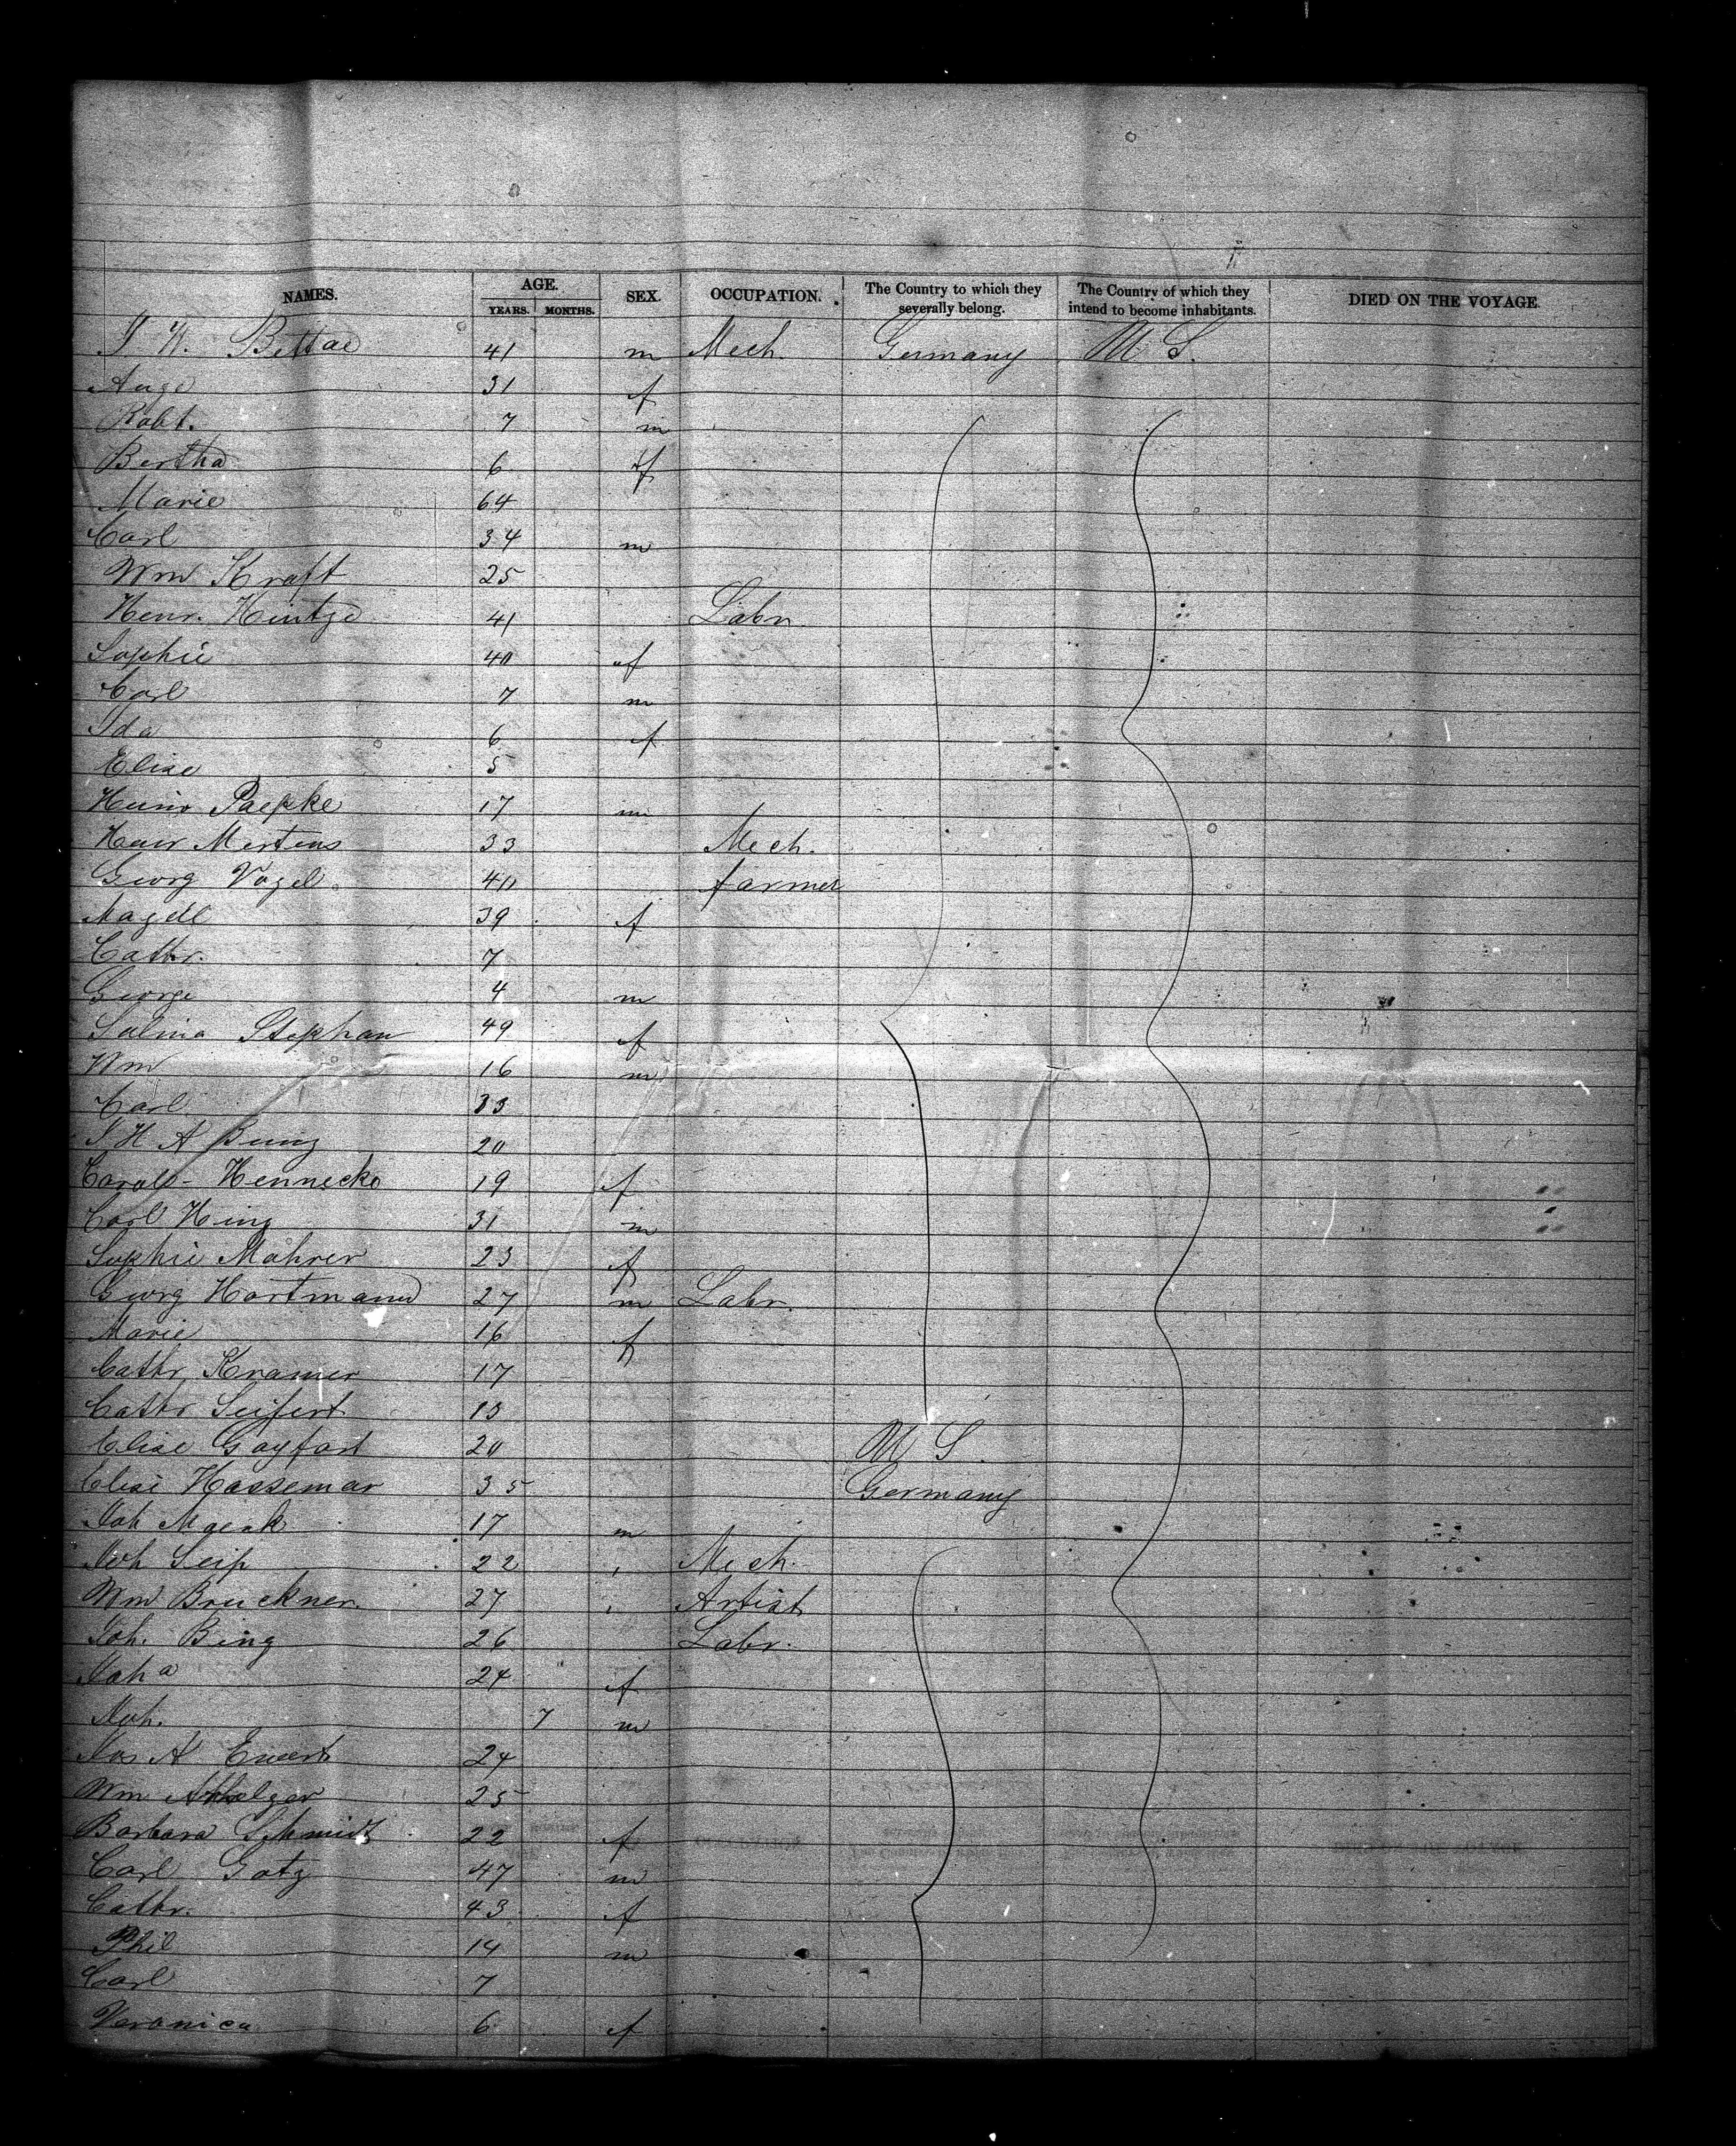 NAMES. AGE. SEX. OCCUPATION. The Country to which they severally belong. The Country of which they intend to become inhabitants. DIED ON THE VOYAGE.
YEARS. MONTHS.
41 m Mech. Germany U S.
31 f
Robt. 7 m
Bertha 6 f
Marie 64
Carl 34 m
Wm Kraft 25
Henr. Hintze 41 Labr
Sophie 40 f
Carl 7 m
Ida 6 f
Elise 5
Paepke 17 m
Mertens 33 Mech.
Georg Vogel 40 farmer
Magdl 39 f
Cathr. 7
George 4 m
Stephan 49 f
Wm 16 m
Carl 33
J H A 20
Hennecke 19 f
Carl 31 m
Sophie Mahrer 23 f
Georg Hartmann 27 m Labr.
Marie 16 f
Cathr Kramer 17
Cathr Seifert
Elise 20 U S.
Elise Hassemar 35 Germany
Joh 17 m
Joh Seip 22 " Mech.
Wm Bruckner. 27 " Artist
Joh. Bing 26 Labr.
Joha 24 f
Joh. 7 m
Jos A Ewert 24
Wm 25
Barbara Schmidt 22 f
Carl Gotz 47 m
Cathr. 43 f
Phil 14 m
Carl 7
Veronica 6 f